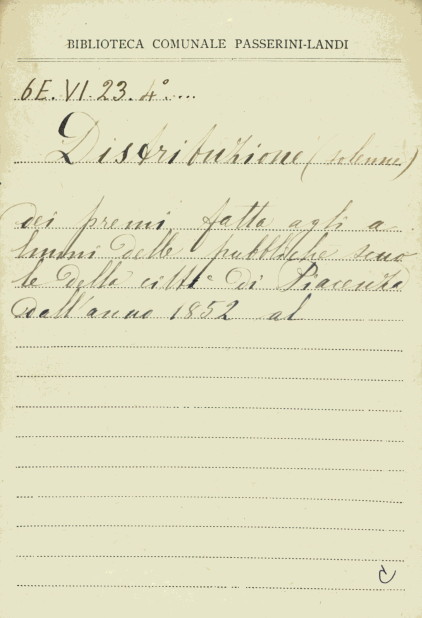 BIBLIOTECA COMUNALE PASSERINI-LANDI
6E. VI. 23. 4°....
Distribuzione (solenne)
dei premi fatta agli a
lunni delle pubbliche scuo
le della città di Piacenza
dall'anno 1852 al